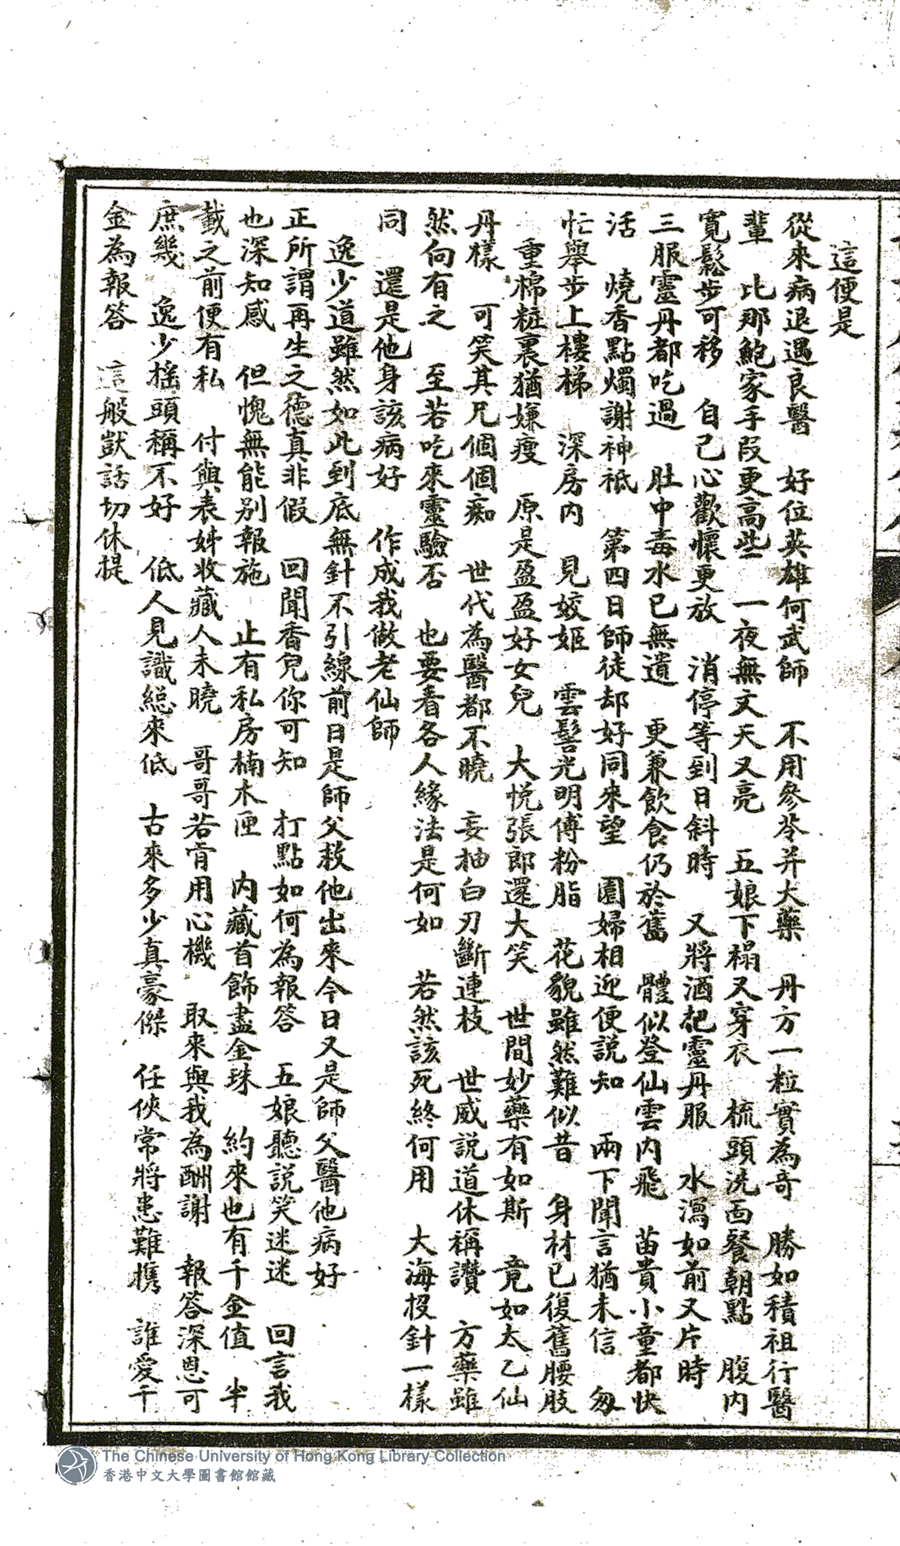 這便是
從來病退遇良醫　好位英雄何武師　不用參苓并大藥　丹方一粒實為奇　勝如積祖行醫
輩　比那鮑家手段更高些　一夜無文天又亮　五娘下榻又穿衣　梳頭洗面餐朝點　腹內
寬鬆步可移　自己心歡懷更放　消停等到日斜時　又將酒把靈丹服　水瀉如前又片時
三服靈丹都吃過　肚中毒水已無遺　更兼飲食仍於舊　體似登仙雲內飛　苗貴小童都快
活　燒香點燭謝神祗　第四日師徒却好同來望　園婦相迎便説知　兩下聞言猶未信　匆
忙舉步上樓梯　深房內　見姣姬　雲髻光明傅粉脂　花貌雖然難似昔　身材已復舊腰肢
重棉粧裹猶嫌瘦　原是盈盈好女兒　大悅張郎還大笑　世間妙藥有如斯　竟如太乙仙
丹樣　可笑其兄個個痴　世代為醫都不曉　妄抽白刃斷連枝　世威説道休稱讚　方藥雖
然向有之　至若吃來靈驗否　也要看各人緣法是何如　若然該死終何用　大海投針一樣
同　還是他身該病好　作成我做老仙師
逸少道雖然如此到底無針不引線前日是師父救他出來今日又是師父醫他病好
正所謂再生之德真非假　回聞香兒你可知　打點如何為報答　五娘聽説笑迷迷　回言我
也深知感　但愧無能別報施　止有私房楠木匣　內藏首飾盡金珠　約來也有千金值　半
載之前便有私　付與表姊收藏人未曉　哥哥若肯用心機　取來與我為酬謝　報答深恩可
庶幾　逸少搖頭稱不好　低人見識總來低　古來多少真豪傑　任俠常將患難携　誰愛千
金為報答　這般獃話切休提
The Chinese University of Hong Kong Library Collection
香港中文大學圖書館館藏